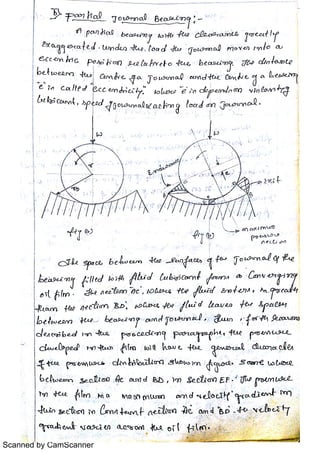 B) Partial Journal Bearing:-
A partial bearing with the clearance greatly
Exaggerated. Under the load the journal moves into a
eccentric position relative to the bearing. The distance
between the centre of a Journal and the centre of a bearing
"e" is called "eccentricity". where "e" is dependen
lubricant, speed of journal, load on journal.
W
W
r
Entrance
e
exit
fig (a)
fig (b)
maximum
pressure
section
The space between the surfaces of the Journal & the
bearing filled with fluid lubricant forms a Converging
oil film. The section AC, where the fluid enters, is greater
than the section BD, where the fluid leaves the space
between the bearing and journal. Thus, for the reasons
described in the preceding paragraphs, the pressure
developed in the film will have the general character
of the pressure distribution shown in figure, some where
between section AC and BD, in section EF. The pressure
in the film is a maximum and velocity gradient in
this section is constant section AC and BD. the velocity
gradient varies across the oil film.
Scanned by CamScanner